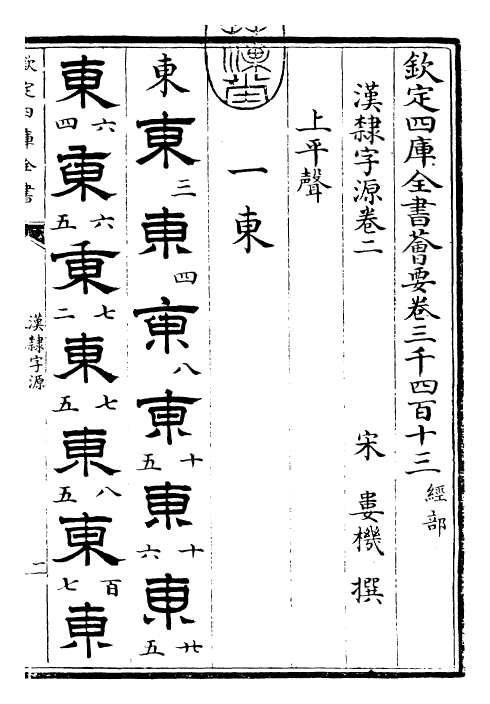 欽定四庫全書薈要卷三千四百十三 經部
漢隸字源卷二 宋 婁機 撰
上平聲
一東
東 東三 東四 東八 東十五 東十六 東廿五
東六四 東六五 東七二 東七五 東八五 東百七 東
欽定四庫全書 漢隸字源 二